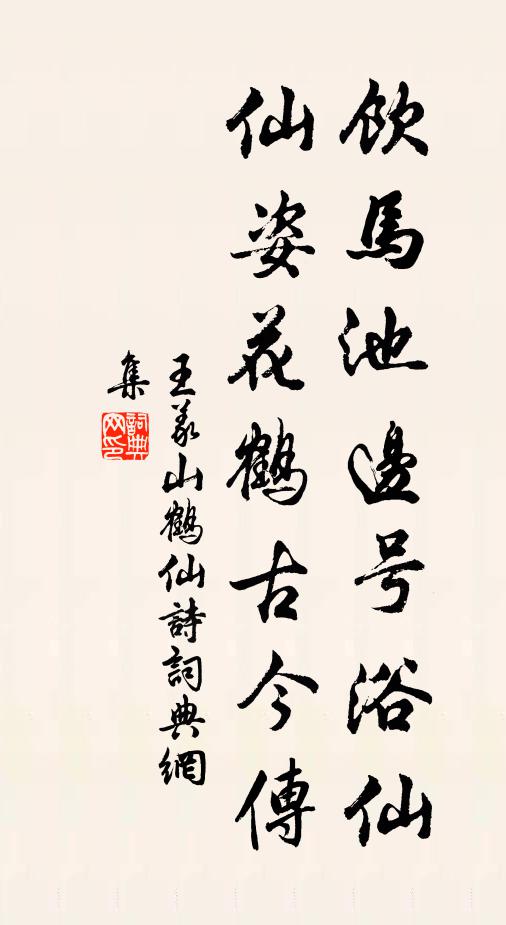 飲馬池邊号浴仙
仙姿花鶴古今傳
王义山鶴仙詩詞典網
集
詞典
网印